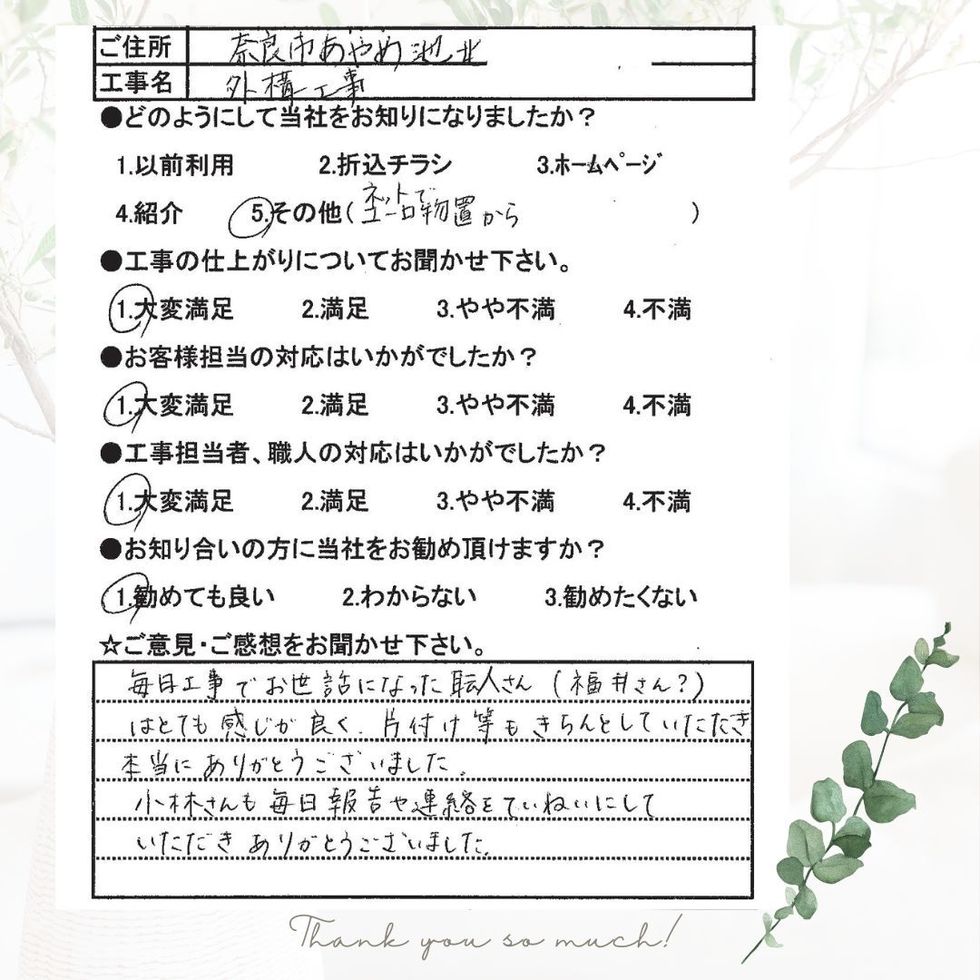 ご住所 奈良市あやめ池北
工事名 外構工事
●どのようにして当社をお知りになりましたか？
1.以前利用 2.折込チラシ 3.ホームページ
4.紹介 5.その他(ネットでユーロ物置から)
●工事の仕上がりについてお聞かせ下さい。
1.大変満足 2.満足 3.やや不満 4.不満
●お客様担当の対応はいかがでしたか？
1.大変満足 2.満足 3.やや不満 4.不満
●工事担当者、職人の対応はいかがでしたか？
1.大変満足 2.満足 3.やや不満 4.不満
●お知り合いの方に当社をお勧め頂けますか？
1.勧めても良い 2.わからない 3.勧めたくない
☆ご意見・ご感想をお聞かせ下さい。
毎日工事でお世話になった職人さん（福井さん？）
はとても感じが良く、片付け等もきちんとしていただき
本当にありがとうございました。
小林さんも毎日報告や連絡をていねいにして
いただきありがとうございました。
Thank you so much!